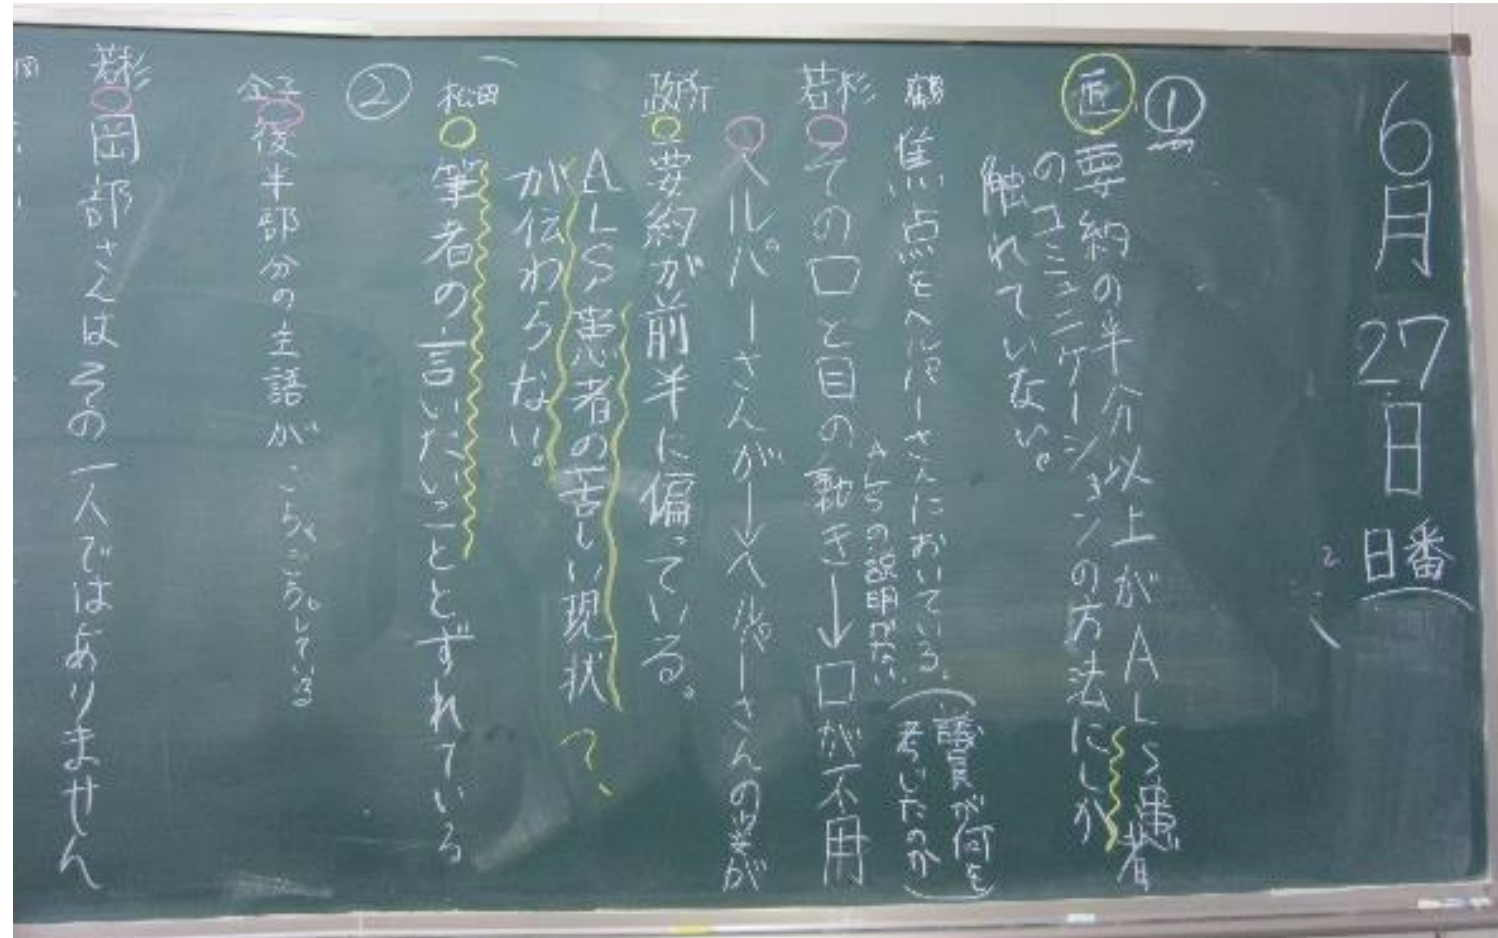 6月27日
日番
①
匠 要約の半分以上がALS患者
のコミュニケーションの方法にしか
触れていない。
焦点をヘルパーさんにおいている。(議員が何を
考いたのか)
ALSの説明がない
若杉 その口と目の動き→口が不用
ヘルパーさんが→ヘルパーさんの
政所 要約が前半に偏っている。
ALS患者の苦しい現状?
が伝わらない。
松田 筆者の言いたいこととずれている
②
金子 後半部分の主語がころころしている
若杉 岡部さんはその一人ではありません